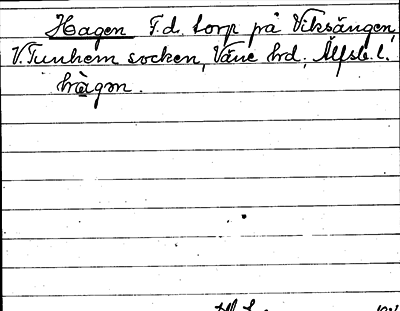 Hagen F.d. torp på Viksängen,
V. Tunhem socken, Väne hrd, Älfsb. l.
hàgən.